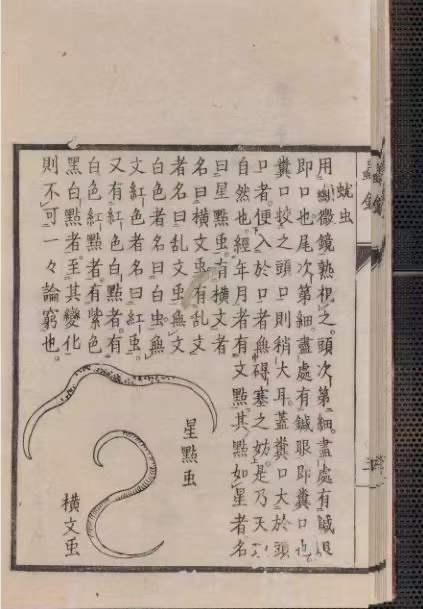 蚘虫
用微鏡熟視之。頭次第細。盡處有鍼眼
即口也。尾次第細。盡處有鍼眼即糞口也。
糞口較之頭口則稍大耳。蓋糞口大於頭
口者。便入於口者無碍塞之妨。是乃天
自然也。經年月者有文點。其點如星者名
曰星點䖝。有橫文者
名曰橫文䖝有乱文
者名曰乱文䖝無文
白色者名曰白䖝無
文紅色者名曰紅䖝。
又有紅色白點者有
白色紅點者有紫色
黑白點者。至其變化
則不可一々論窮也。
星點䖝
橫文䖝